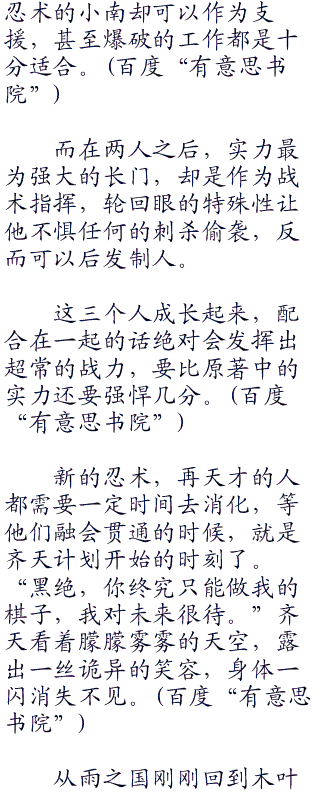 忍术的小南却可以作为支
援，甚至爆破的工作都是十
分适合。(百度“有意思书
院”)
而在两人之后，实力最
为强大的长门，却是作为战
术指挥，轮回眼的特殊性让
他不惧任何的刺杀偷袭，反
而可以后发制人。
这三个人成长起来，配
合在一起的话绝对会发挥出
超常的战力，要比原著中的
实力还要强悍几分。(百度
“有意思书院”)
新的忍术，再天才的人
都需要一定时间去消化，等
他们融会贯通的时候，就是
齐天计划开始的时刻了。
“黑绝，你终究只能做我的
棋子，我对未来很待。”齐
天看着朦朦雾雾的天空，露
出一丝诡异的笑容，身体一
闪消失不见。(百度“有意思
书院”)
从雨之国刚刚回到木叶